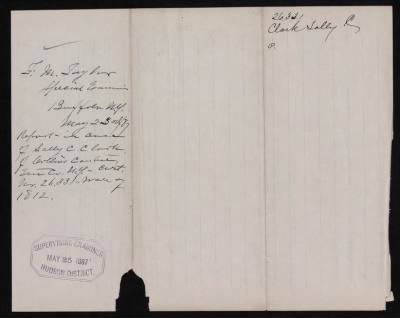 2633
Clark Sally C.
P.
F. M. Taylor
Special Examiner
Buffalo N.Y.
May 23
Report - in case
of Sally C. Clark
of Collins Centre,
Erie Co. N.Y. - Cert.
No. 26.33. - War of
1812.
SUPERVISING EXAMINER
MAY 25 1887
HUDSON DISTRICT.